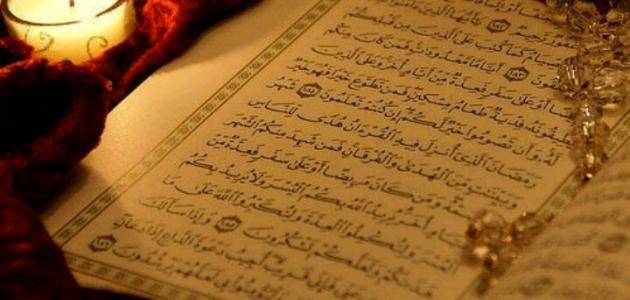 رَّحِيمٌ ١٨٢ يَٰٓأَيُّهَا ٱلَّذِينَ ءَامَنُوا۟
ٱلصِّيَامُ كَمَا كُتِبَ عَلَى ٱلَّذِينَ مِن قَبْلِكُمْ
تَتَّقُونَ ١٨٣ أَيَّامًا مَّعْدُودَٰتٍ فَمَن كَانَ مِنكُم
مَّرِيضًا أَوْ عَلَىٰ سَفَرٍ فَعِدَّةٌ مِّنْ أَيَّامٍ أُخَرَ وَعَلَى ٱلَّذِينَ
يُطِيقُونَهُۥ فِدْيَةٌ طَعَامُ مِسْكِينٍ فَمَن تَطَوَّعَ خَيْرًا فَهُوَ خَيْرٌ
لَّهُۥ وَأَن تَصُومُوا۟ خَيْرٌ لَّكُمْ إِن كُنتُمْ تَعْلَمُونَ ١٨٤ شَهْرُ
رَمَضَانَ ٱلَّذِىٓ أُنزِلَ فِيهِ ٱلْقُرْءَانُ هُدًى لِّلنَّاسِ
وَبَيِّنَٰتٍ مِّنَ ٱلْهُدَىٰ وَٱلْفُرْقَانِ فَمَن شَهِدَ مِنكُمُ ٱلشَّهْرَ
فَلْيَصُمْهُ وَمَن كَانَ مَرِيضًا أَوْ عَلَىٰ سَفَرٍ فَعِدَّةٌ مِّنْ
أَيَّامٍ أُخَرَ يُرِيدُ ٱللَّهُ بِكُمُ ٱلْيُسْرَ وَلَا يُرِيدُ بِكُمُ
ٱلْعُسْرَ وَلِتُكْمِلُوا۟ ٱلْعِدَّةَ وَلِتُكَبِّرُوا۟ ٱللَّهَ عَلَىٰ مَا
هَدَىٰكُمْ وَلَعَلَّكُمْ تَشْكُرُونَ ١٨٥ وَإِذَا سَأَلَكَ
عِبَادِى عَنِّى فَإِنِّى قَرِيبٌ أُجِيبُ دَعْوَةَ ٱلدَّاعِ إِذَا دَعَانِ
وَلْيُؤْمِنُوا۟ بِى لَعَلَّهُمْ يَرْشُدُونَ ١٨٦